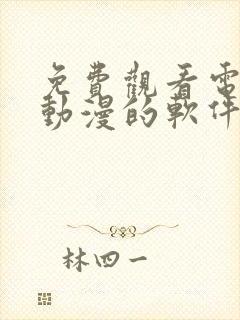 免費觀看電
動漫的軟件
林四一